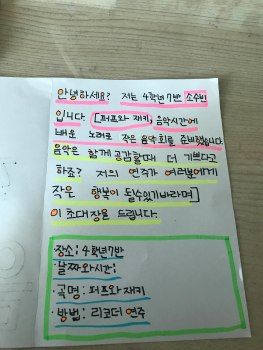 안녕하세요? 저는 4학년7반 소수빈
입니다. [퍼프와 재키, 음악시간에
배운 노래로 작은 음악회를 준비했습니다.
음악은 함께 공감할때 더 기쁘다고
하죠? 저의 연주가 여러분에게
작은 행복이 될수있기바라며]
이 초대장을 드립니다.
·장소: 4학년7반
·날짜와시간:
·곡명: 퍼프와재키
·방법: 리코더 연주